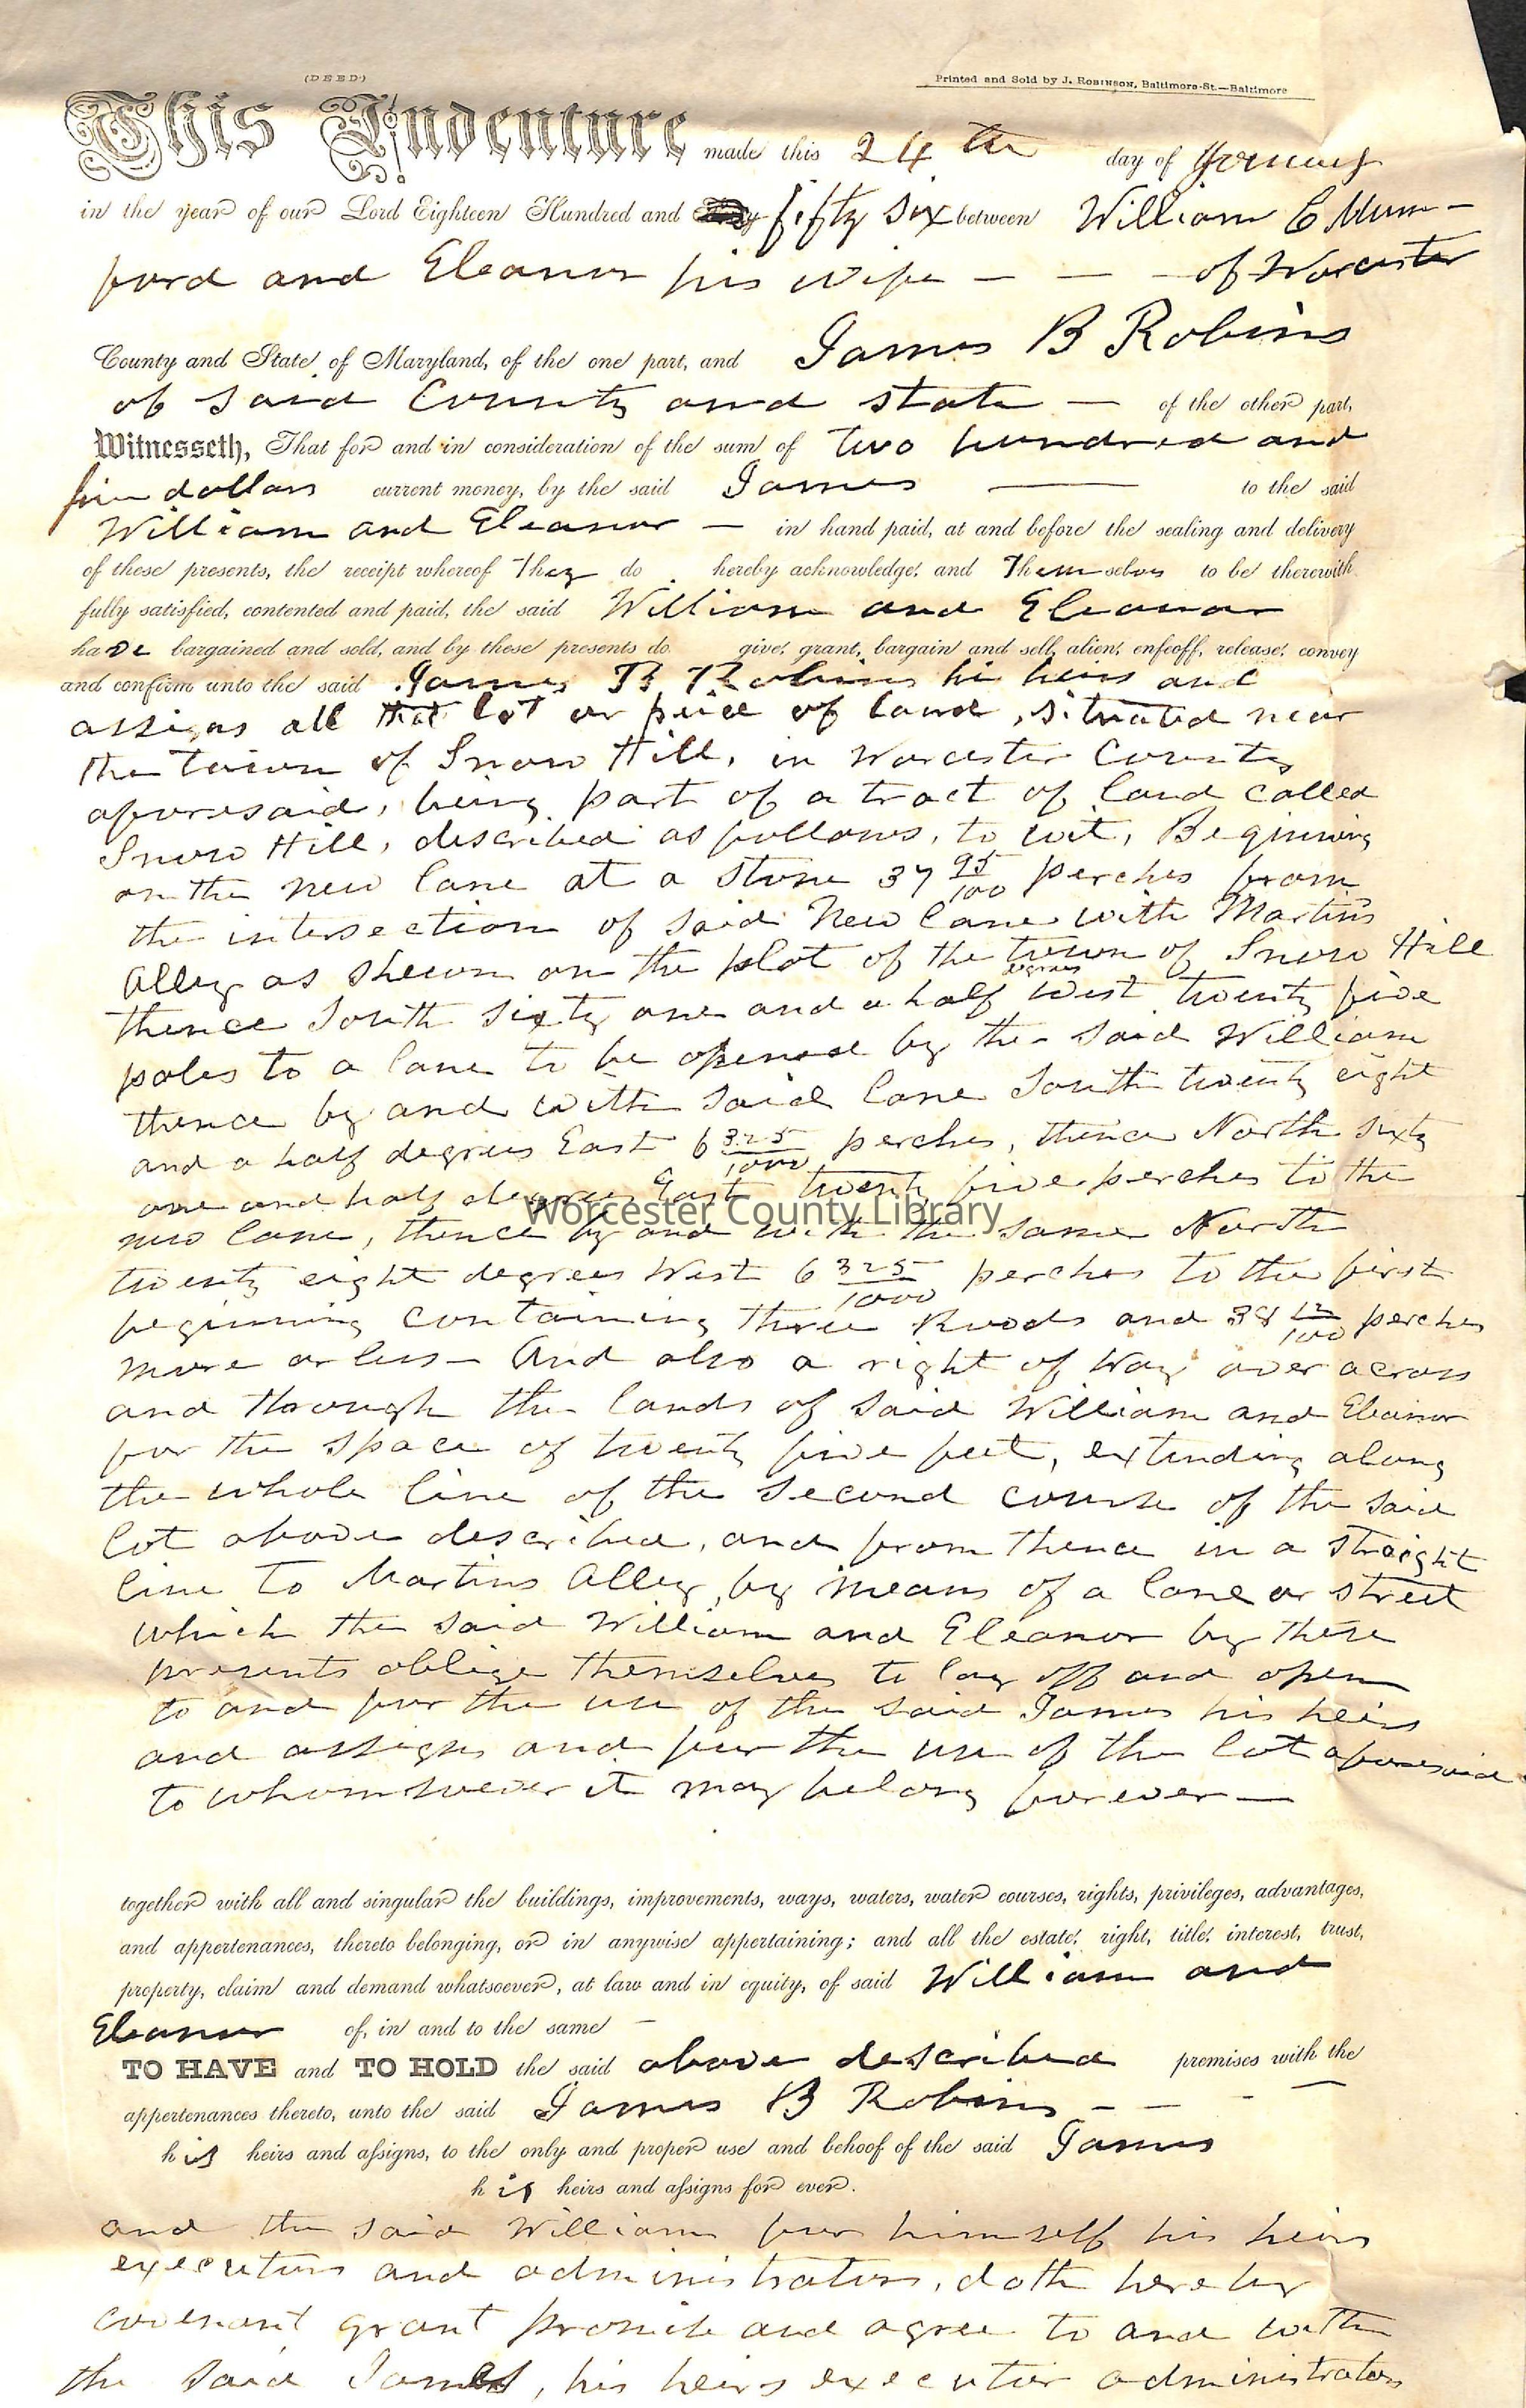 (DEED)
Printed and Sold by J. Robinson, Baltimore-St.—Baltimore
This Indenture made this 24th day of January
in the year of our Lord Eighteen Hundred and fifty six between William C Mum-
ford and Eleanor his wife — — — of Worcester
County and State of Maryland, of the one part, and James B Robins
of said County and state — of the other part,
Witnesseth, That for and in consideration of the sum of two hundred and
five dollars current money, by the said James — to the said
William and Eleanor — in hand paid, at and before the sealing and delivery
of these presents, the receipt whereof they do hereby acknowledge, and themselves to be therewith
fully satisfied, contented and paid, the said William and Eleanor
have bargained and sold, and by these presents do give, grant, bargain and sell, alien, enfeoff, release, convey
and confirm unto the said James B Robins his heirs and
assigns all that lot or peice of land, situated near
the town of Snow Hill, in Worcester County
aforesaid, being part of a tract of land called
Snow Hill, described as follows, to wit, Beginning
on the new lane at a stone 37 95/100 perches from
the intersection of said New lane with Martins
Alley as shewn on the plot of the town of Snow Hill
thence South sixty one and a half degrees West twenty five
poles to a lane to be opened by the said William
thence by and with said lane South twenty eight
and a half degrees East 6 325/1000 perches, thence North sixty
one and half degrees East twenty five perches to the
new lane, thence by and with the same North
twenty eight degrees West 6 325/1000 perches to the first
beginning containing three Roods and 38 12/100 perches
more or less — And also a right of Way over across
and through the lands of said William and Eleanor
for the space of twenty five feet, extending along
the whole line of the second course of the said
lot above described, and from thence in a straight
line to Martins Alley, by means of a lane or street
which the said William and Eleanor by these
presents oblige themselves to lay off and open
to and for the use of the said James his heirs
and assigns and for the use of the lot aforesaid
to whomsoever it may belong forever —
together with all and singular the buildings, improvements, ways, waters, water courses, rights, privileges, advantages,
and appertenances, thereto belonging, or in anywise appertaining; and all the estate, right, title, interest, trust,
property, claim and demand whatsoever, at law and in equity, of said William and
Eleanor of, in and to the same —
TO HAVE and TO HOLD the said above described premises with the
appertenances thereto, unto the said James B Robins — — — —
his heirs and assigns, to the only and proper use and behoof of the said James
his heirs and assigns for ever.
and the said William for himself his heirs
executors and administrators, doth hereby
covenant grant promise and agree to and with
the said James, his heirs executor administrators
Worcester County Library